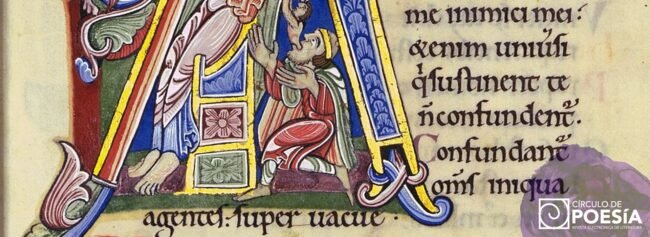 me inimici mei:
&enim uniūsi
q̓ sustinent te
n̄ confundent᷑.
Confundant᷑
om̄s iniqua
agentes: super uacue.
CÍRCULO DE
POESÍA
REVISTA ELECTRÓNICA DE LITERATURA